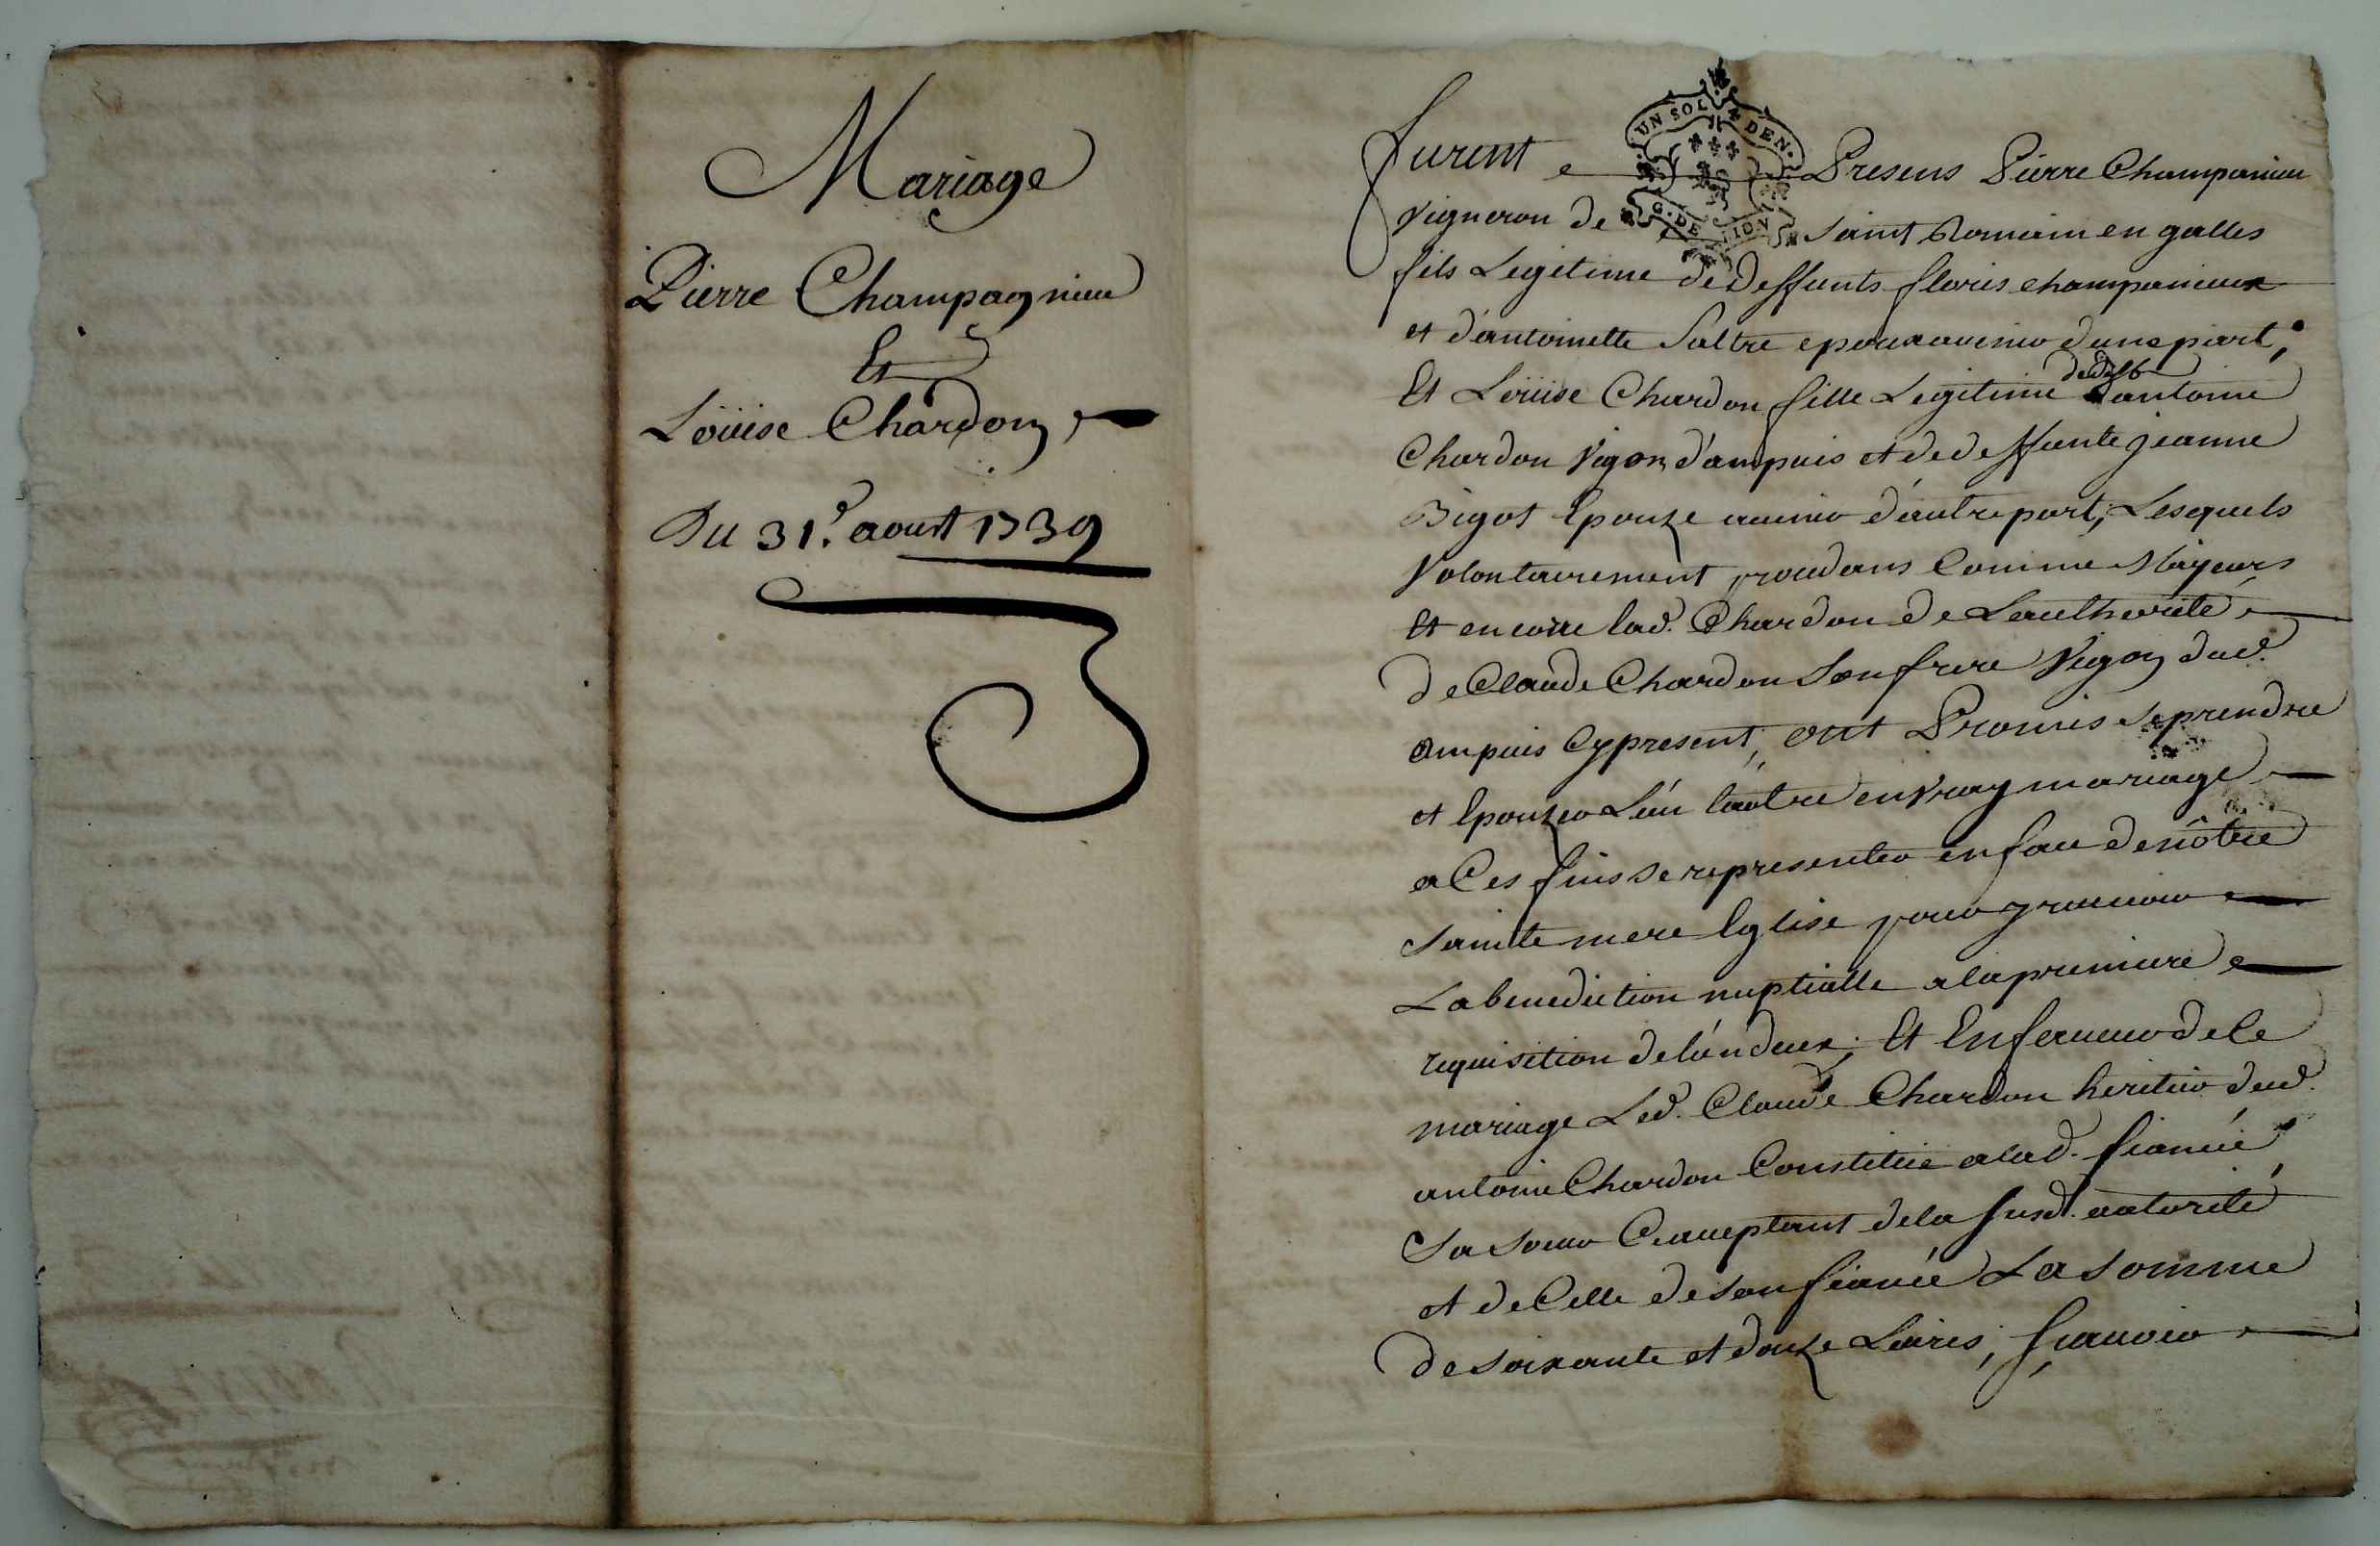 Mariage
Pierre Champagnieu
Et
Loüise Chardon
Du 31.e aoust 1739
UN SOL 4 DEN.
G. DE LION
furent Presens Pierre Champanieu
Vigneron de saint Romain en galles
fils Legitime de deffunts fleuris champanieux
et d'antoinette Saltre epoux avenir dune part,
Et Loüise Chardon fille Legitime dantoine
Chardon Vigon d'ampuis et de deffunte jeanne
Bigot Epouze avenir d'autre part, Lesquels
Volontairement procedans Comme Majeurs
Et encorre lad. Chardon de L'authorité
de Claude Chardon Son frere Vigon dud.
ampuis Cy present, ont Promis se prendre
et Epouzer L'un l'autre en vray mariage
a Ces fins se representer en face de nôtre
sainte mere Eglise pour y recevoir
La benediction nuptialle a la premiere
requisition de l'un deux; Et En faveur de Ce
mariage Led. Claude Chardon heritier dud.
antoine Chardon Constitüe a lad. fiancée
Sa soeur Cy acceptant de la susd. autorité
et de Celle de son fiancé La somme
de soixante et douze Livres, sçavoir